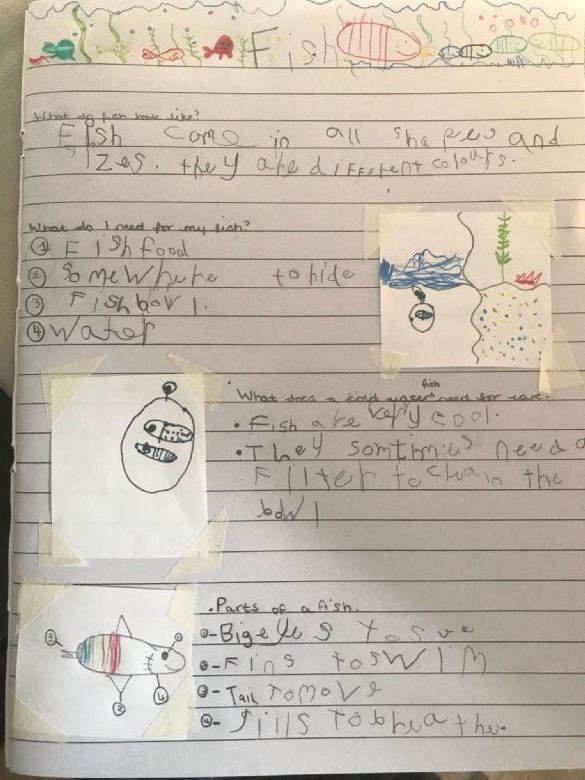 Fish
What do fish look like?
Fish come in all shapes and
sizes. they are different colours.
What do I need for my fish?
① Fish food
② Somewhere to hide
③ Fish bowl.
④ Water
fish
What does a cold water need for care.
• Fish are very cool.
• They somtimes need a
Filter to clean the
bowl
• Parts of a fish.
①-Big eyes to see
②-Fins to swim
③-Tail to move
④-gills to breathe.
③
②
④